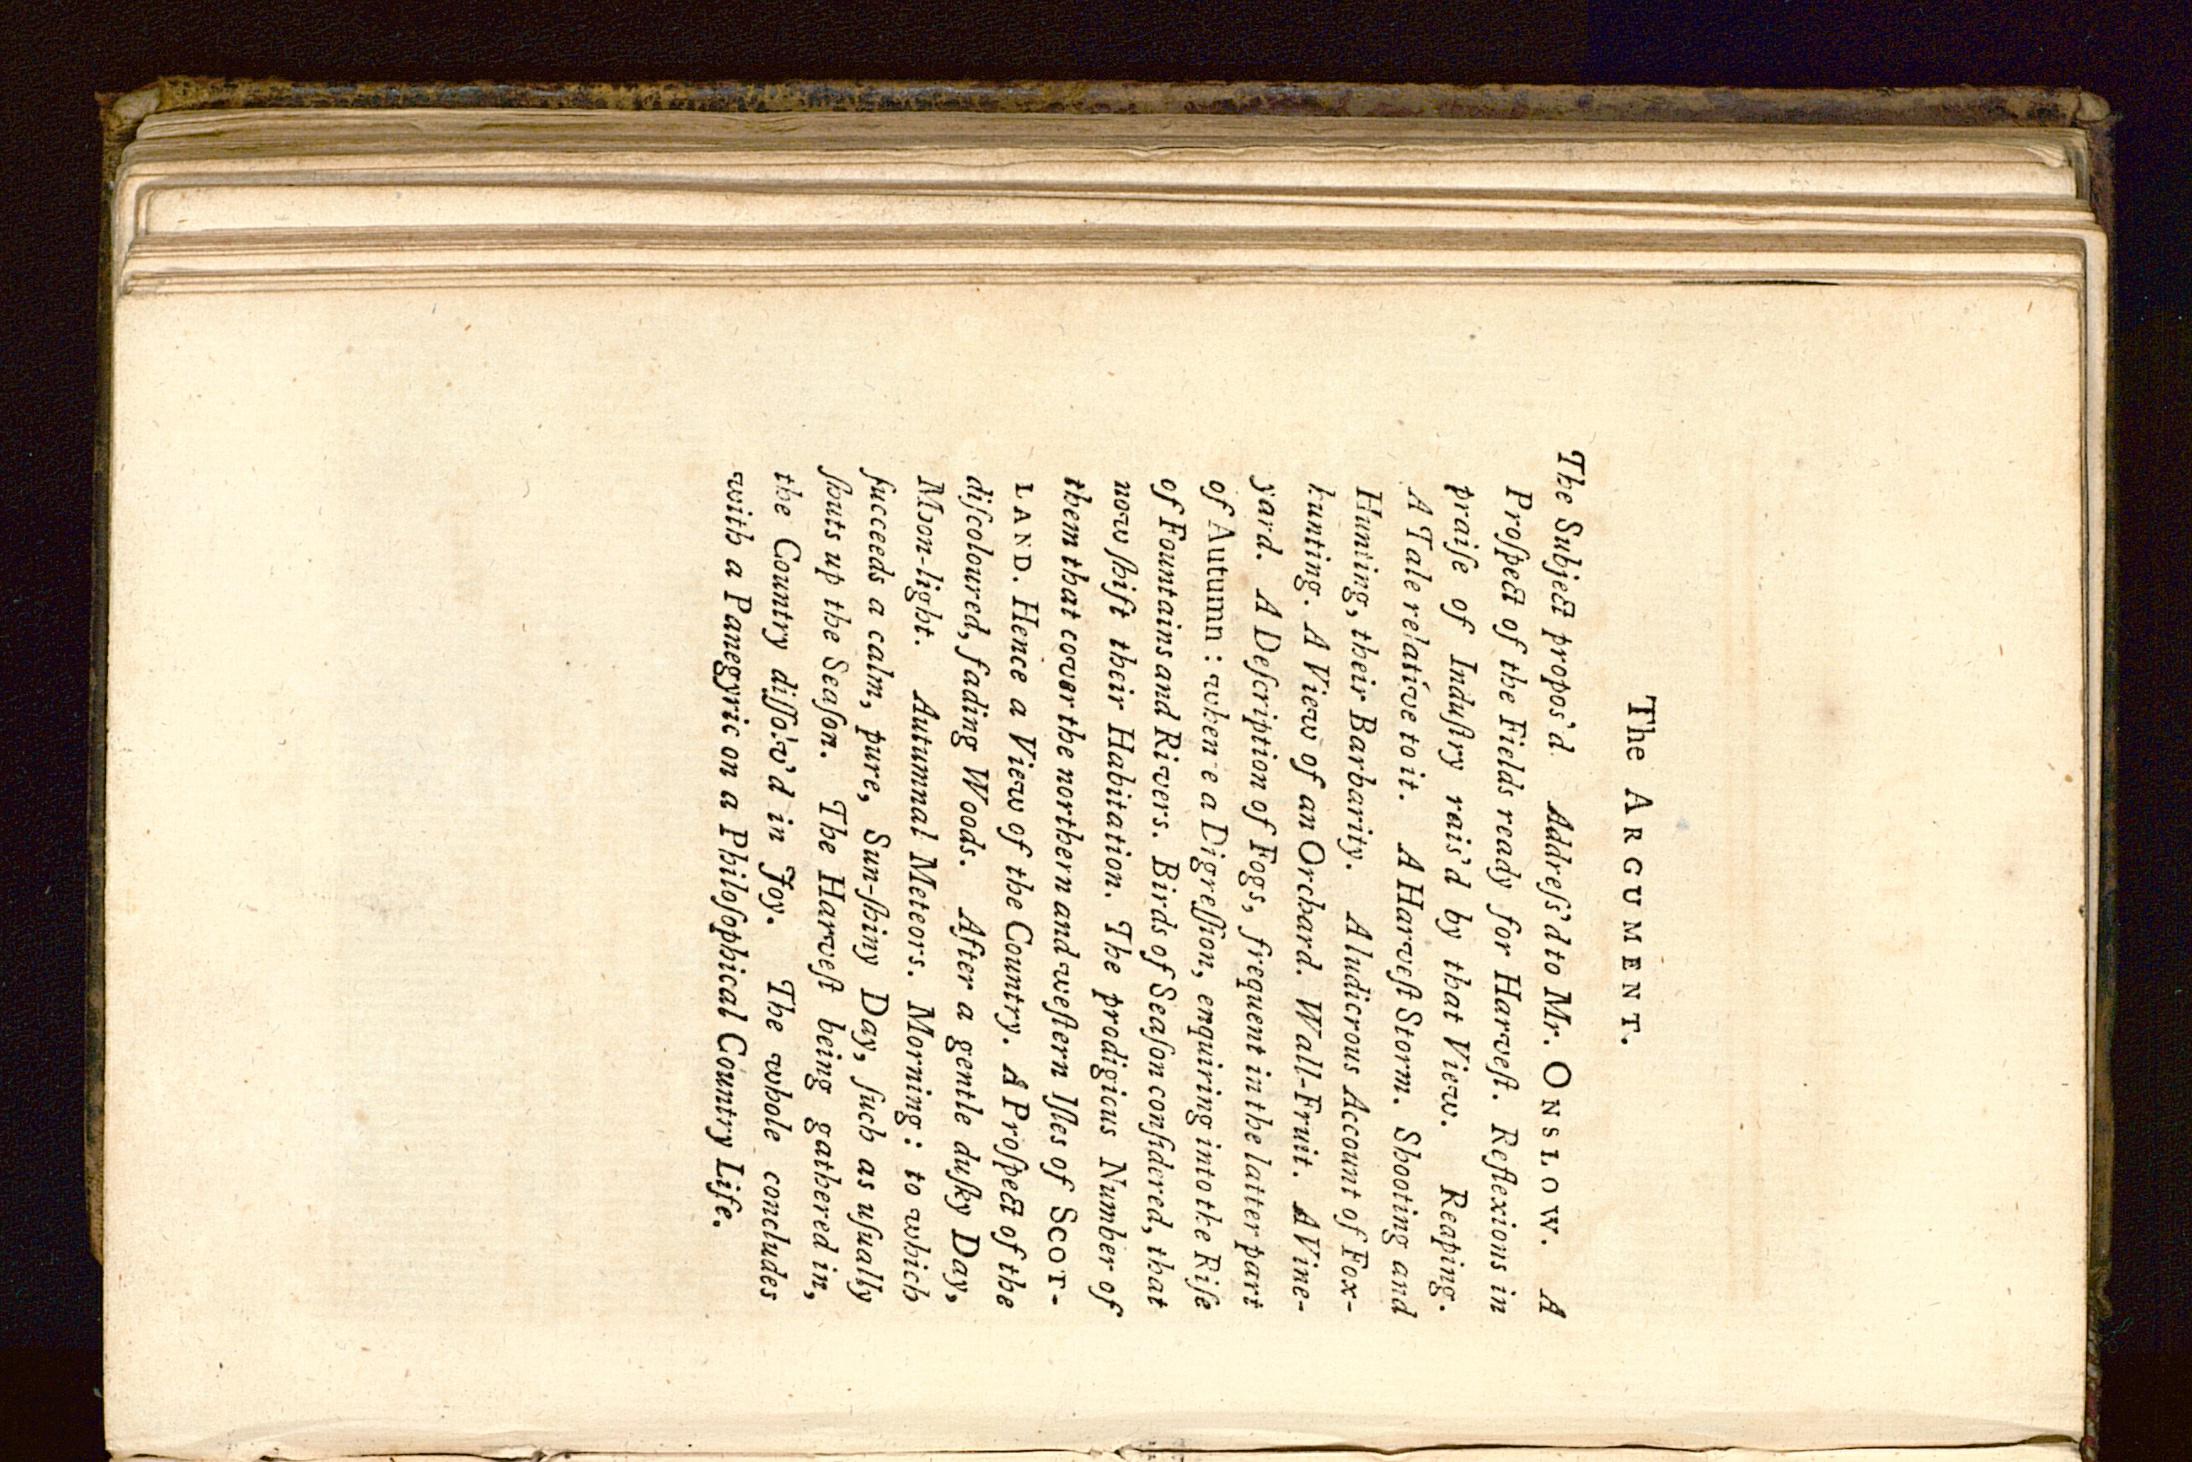 The ARGUMENT.
The Subject propos'd Addreſs'd to Mr. ONSLOW. A
Proſpect of the Fields ready for Harveſt. Reflexions in
praiſe of Induſtry rais'd by that View. Reaping.
A Tale relative to it. A Harveſt Storm. Shooting and
Hunting, their Barbarity. A ludicrous Account of Fox-
hunting. A View of an Orchard. Wall-Fruit. A Vine-
yard. A Deſcription of Fogs, frequent in the latter part
of Autumn: whence a Digreſſion, enquiring into the Riſe
of Fountains and Rivers. Birds of Seaſon conſidered, that
now ſhift their Habitation. The prodigious Number of
them that cover the northern and weſtern Iſles of SCOT-
LAND. Hence a View of the Country. A Proſpect of the
diſcoloured, fading Woods. After a gentle duſky Day,
Moon-light. Autumnal Meteors. Morning: to which
ſucceeds a calm, pure, Sun-ſhiny Day, ſuch as uſually
ſhuts up the Seaſon. The Harveſt being gathered in,
the Country diſſolv'd in Joy. The whole concludes
with a Panegyric on a Philoſophical Country Life.